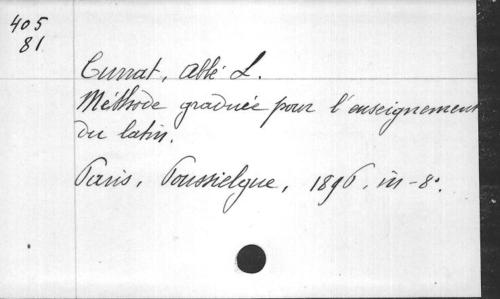 405
81
Currat, Abbé L.
Méthode graduée pour l'enseignement
du latin.
Paris, Poussielgue, 1896. in-8°.